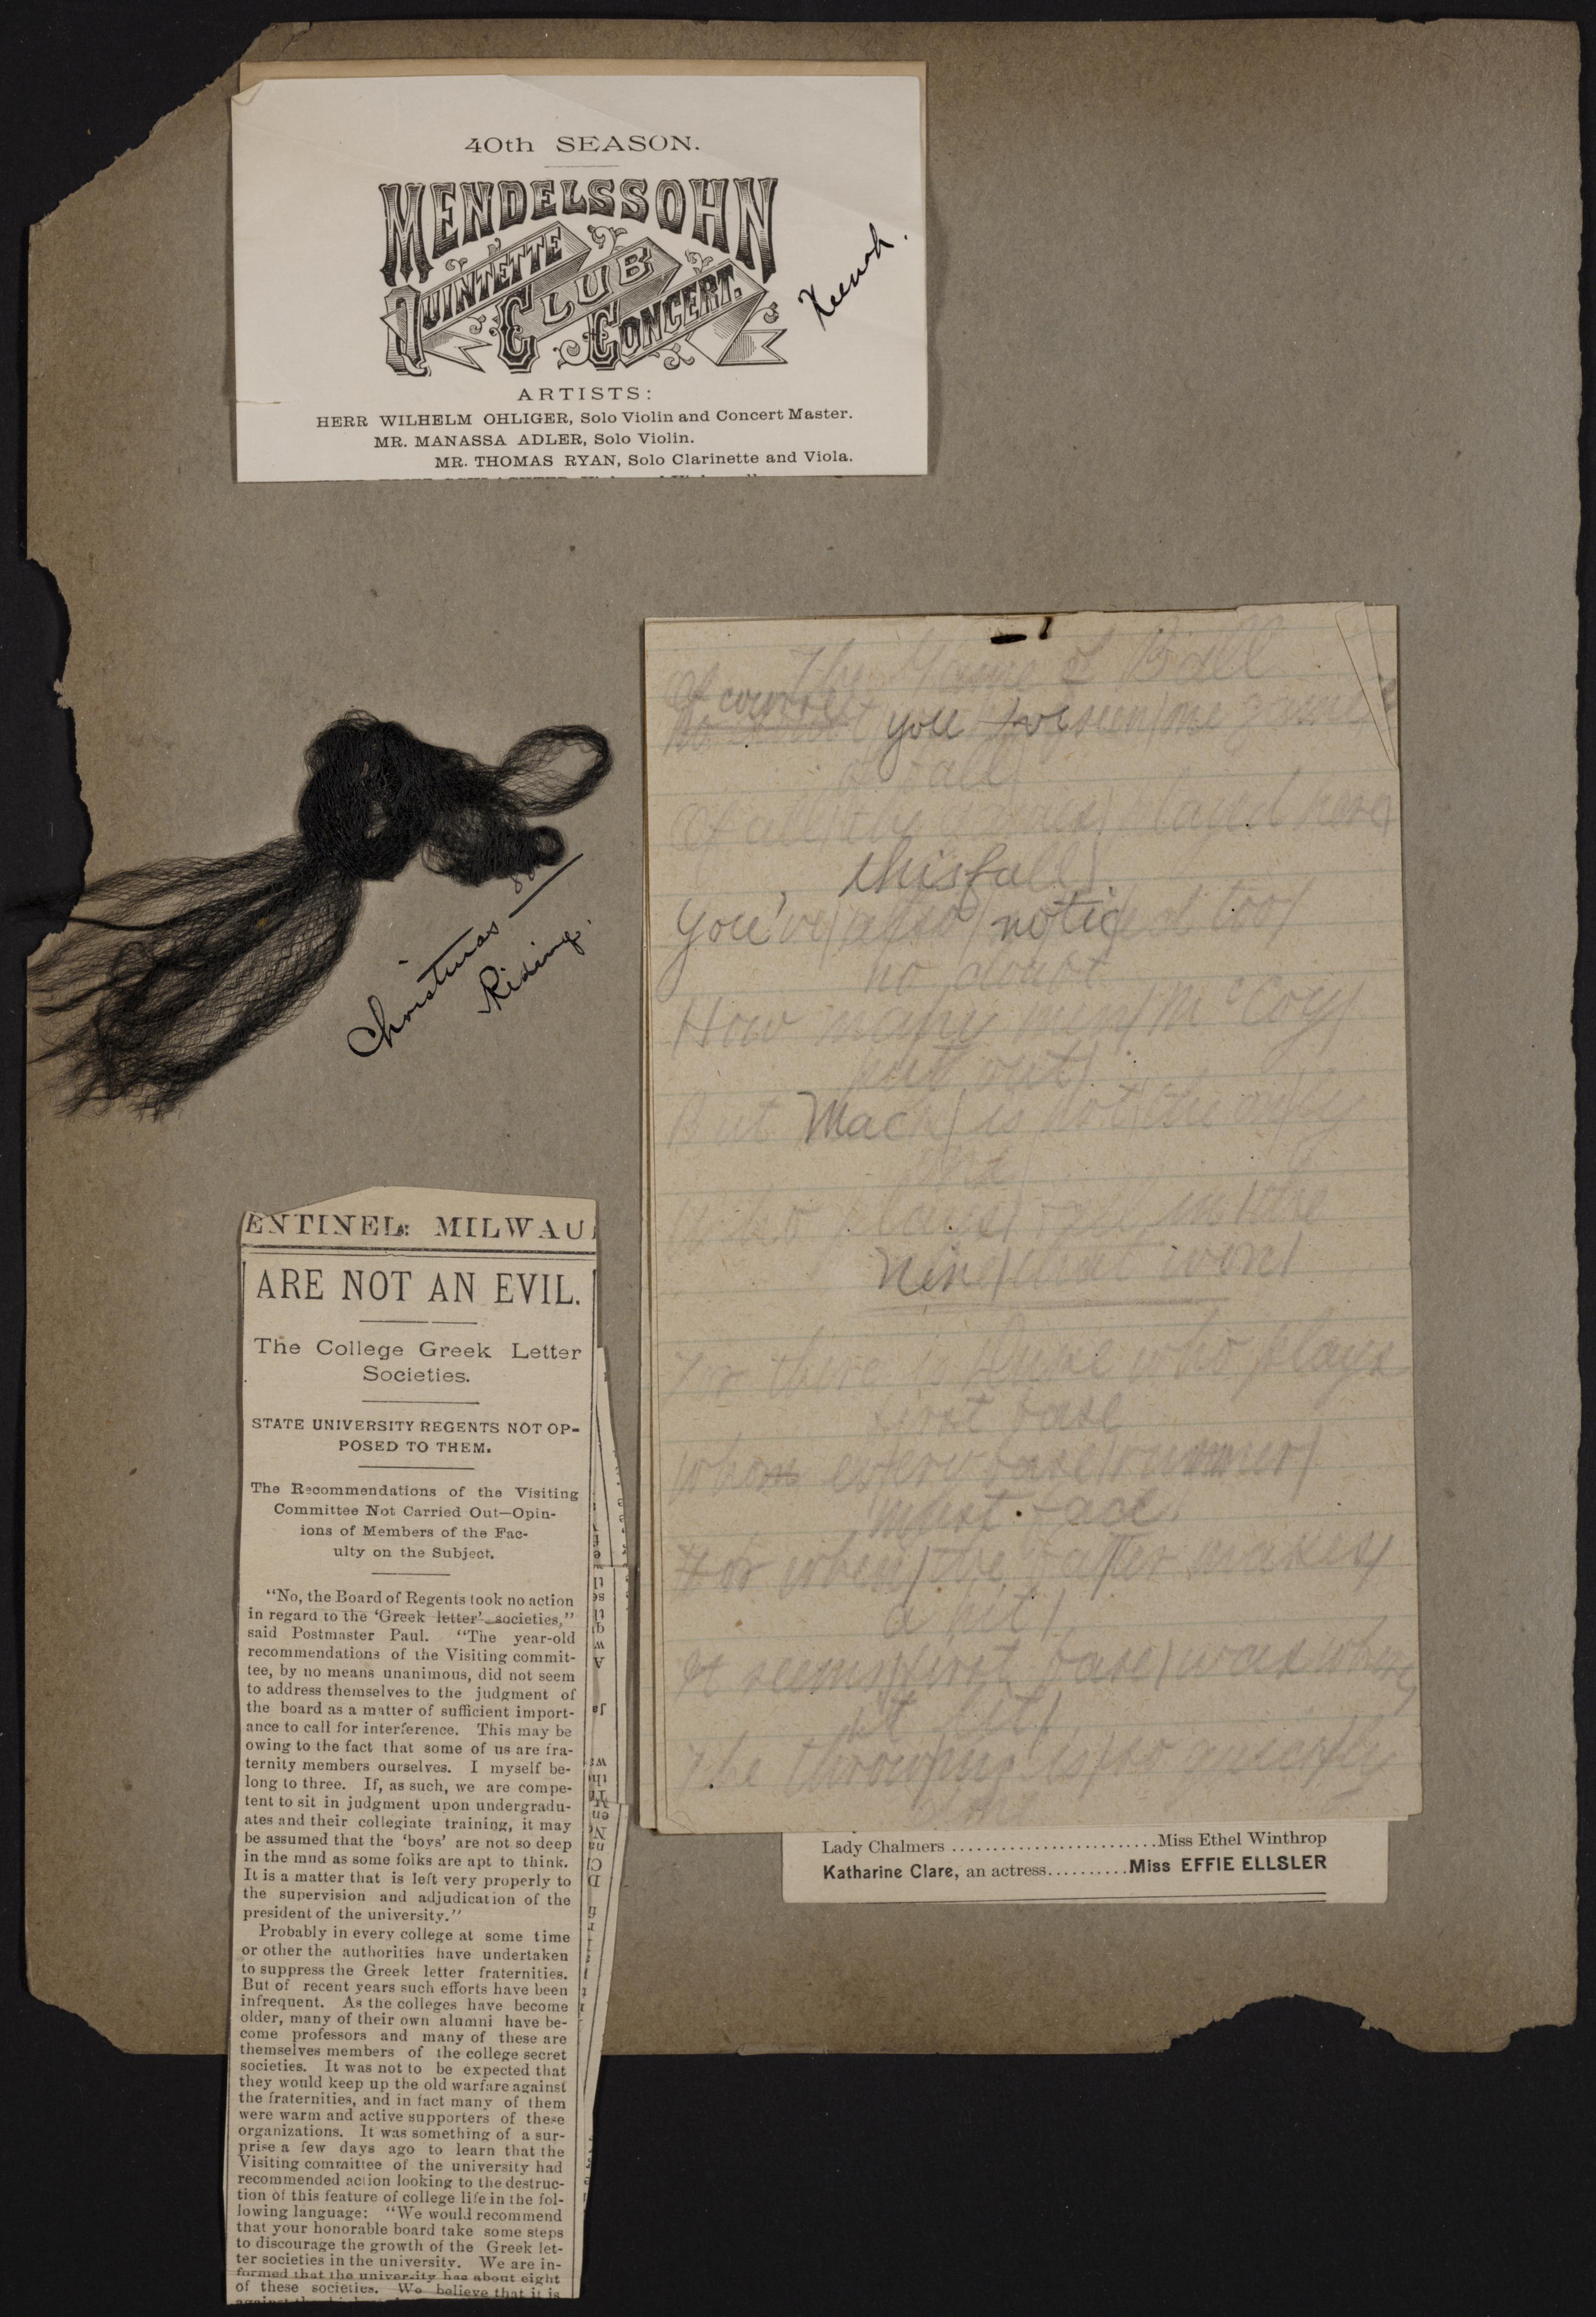 40th SEASON.
MENDELSSOHN
QUINTETTE
CLUB
CONCERT.
ARTISTS:
HERR WILHELM OHLIGER, Solo Violin and Concert Master.
MR. MANASSA ADLER, Solo Violin.
MR. THOMAS RYAN, Solo Clarinette and Viola.
Christmas
Riding.
The Game of Ball
Of course
you seen one game
of ball
Of all the games played here
this fall
You've also noticed too
no doubt
How many men McCoy
put out
But Mack is not the only
one
Who plays ball in the
Nine that won
For there is who plays
first base
Whom every base runner
must face.
For when the batter makes
a hit
It seems first base was where
it lit
The throwing is so quickly
ENTINEL: MILWAU
ARE NOT AN EVIL.
The College Greek Letter
Societies.
STATE UNIVERSITY REGENTS NOT OP-
POSED TO THEM.
The Recommendations of the Visiting
Committee Not Carried Out—Opin-
ions of Members of the Fac-
ulty on the Subject.
"No, the Board of Regents took no action
in regard to the 'Greek letter' societies,"
said Postmaster Paul. "The year-old
recommendations of the Visiting commit-
tee, by no means unanimous, did not seem
to address themselves to the judgment of
the board as a matter of sufficient import-
ance to call for interference. This may be
owing to the fact that some of us are fra-
ternity members ourselves. I myself be-
long to three. If, as such, we are compe-
tent to sit in judgment upon undergradu-
ates and their collegiate training, it may
be assumed that the 'boys' are not so deep
in the mud as some folks are apt to think.
It is a matter that is left very properly to
the supervision and adjudication of the
president of the university."
Probably in every college at some time
or other the authorities have undertaken
to suppress the Greek letter fraternities.
But of recent years such efforts have been
infrequent. As the colleges have become
older, many of their own alumni have be-
come professors and many of these are
themselves members of the college secret
societies. It was not to be expected that
they would keep up the old warfare against
the fraternities, and in fact many of them
were warm and active supporters of these
organizations. It was something of a sur-
prise a few days ago to learn that the
Visiting committee of the university had
recommended action looking to the destruc-
tion of this feature of college life in the fol-
lowing language: "We would recommend
that your honorable board take some steps
to discourage the growth of the Greek let-
ter societies in the university. We are in-
formed that the university has about eight
of these societies. We believe that it is
Lady Chalmers ........................Miss Ethel Winthrop
Katharine Clare, an actress..........Miss EFFIE ELLSLER